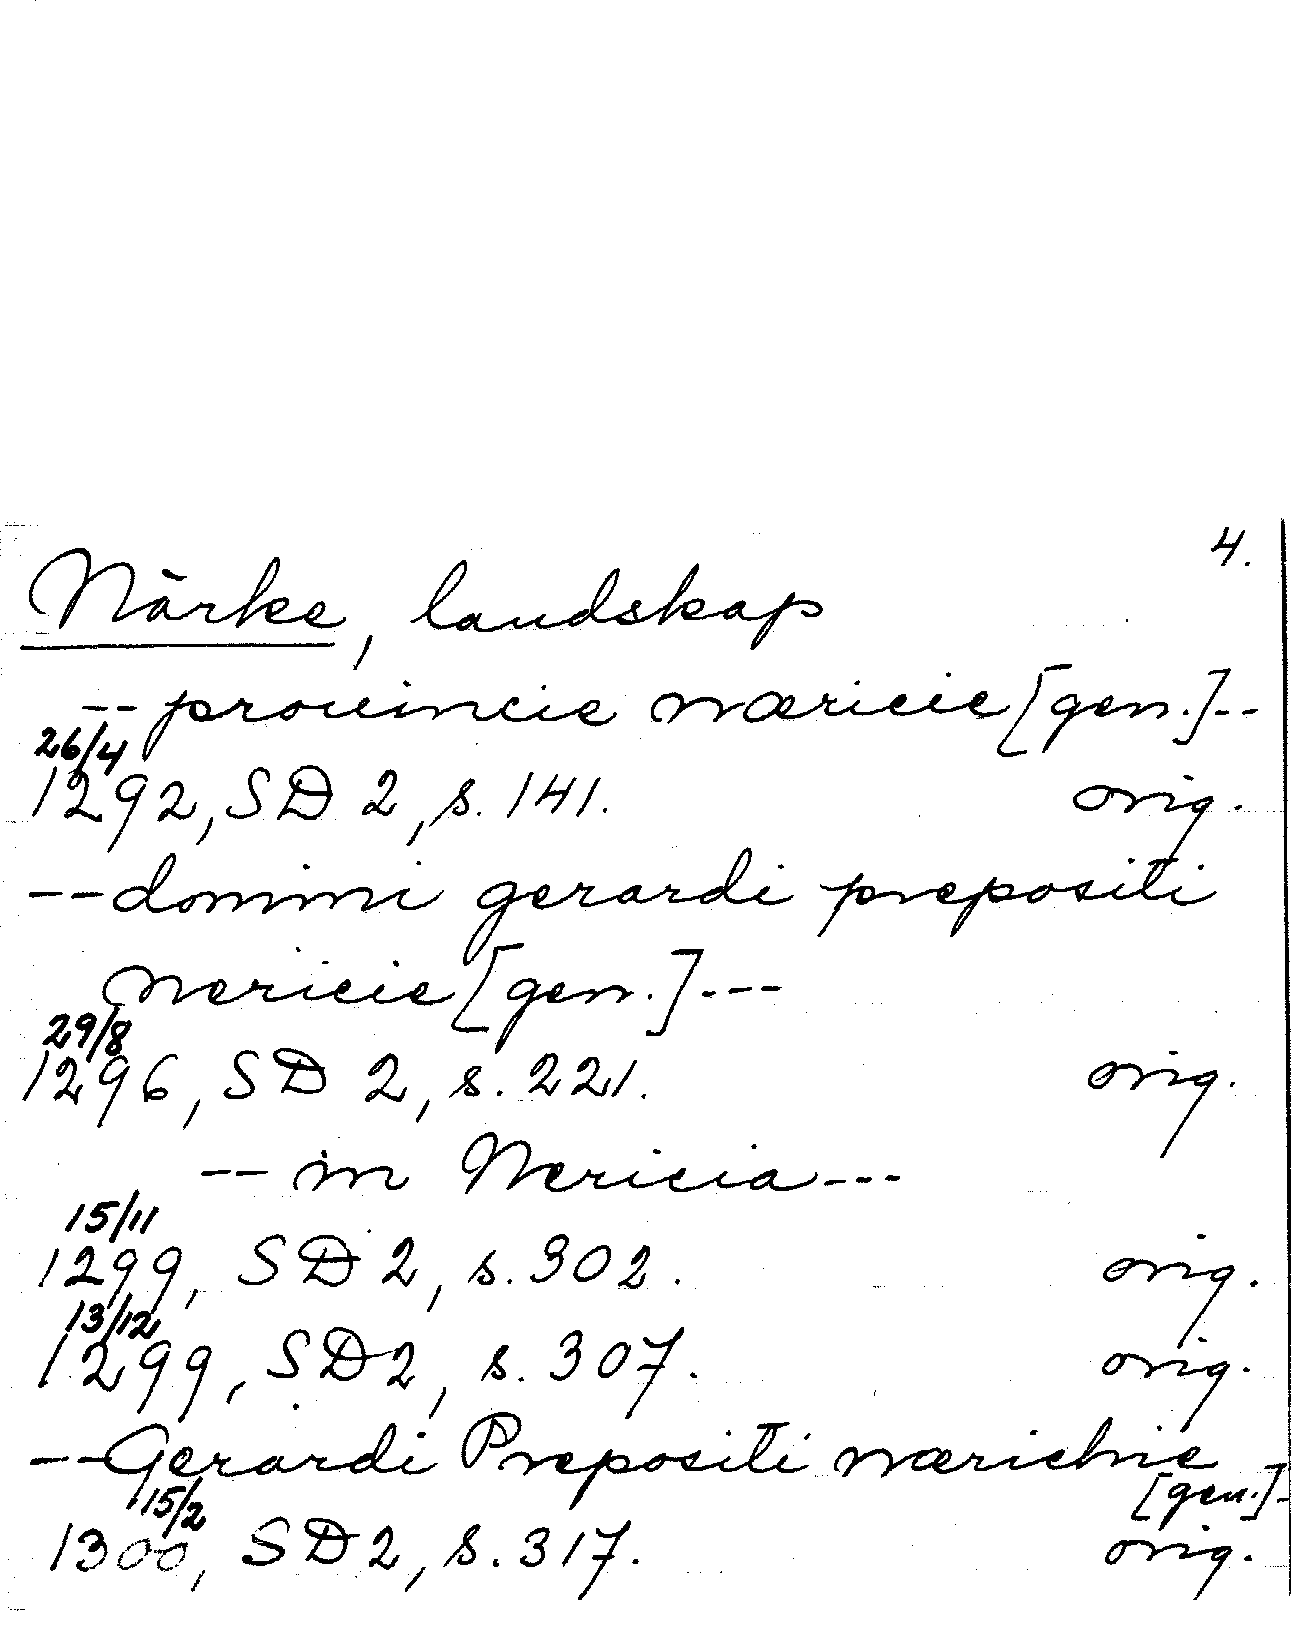 4.
Närke, landskap
-- prouincie næricie [gen.]--
26/4
1292, SD 2, s. 141. orig.
-- domini gerardi prepositi
Nericie [gen.]---
29/8
1296, SD 2, s. 221. orig.
-- in Nericia---
15/11
1299, SD 2, s. 302. orig.
13/12
1299, SD 2, s. 307. orig.
-- Gerardi Prepositi nærichie
[gen.]-
15/2
1300, SD 2, s. 317. orig.